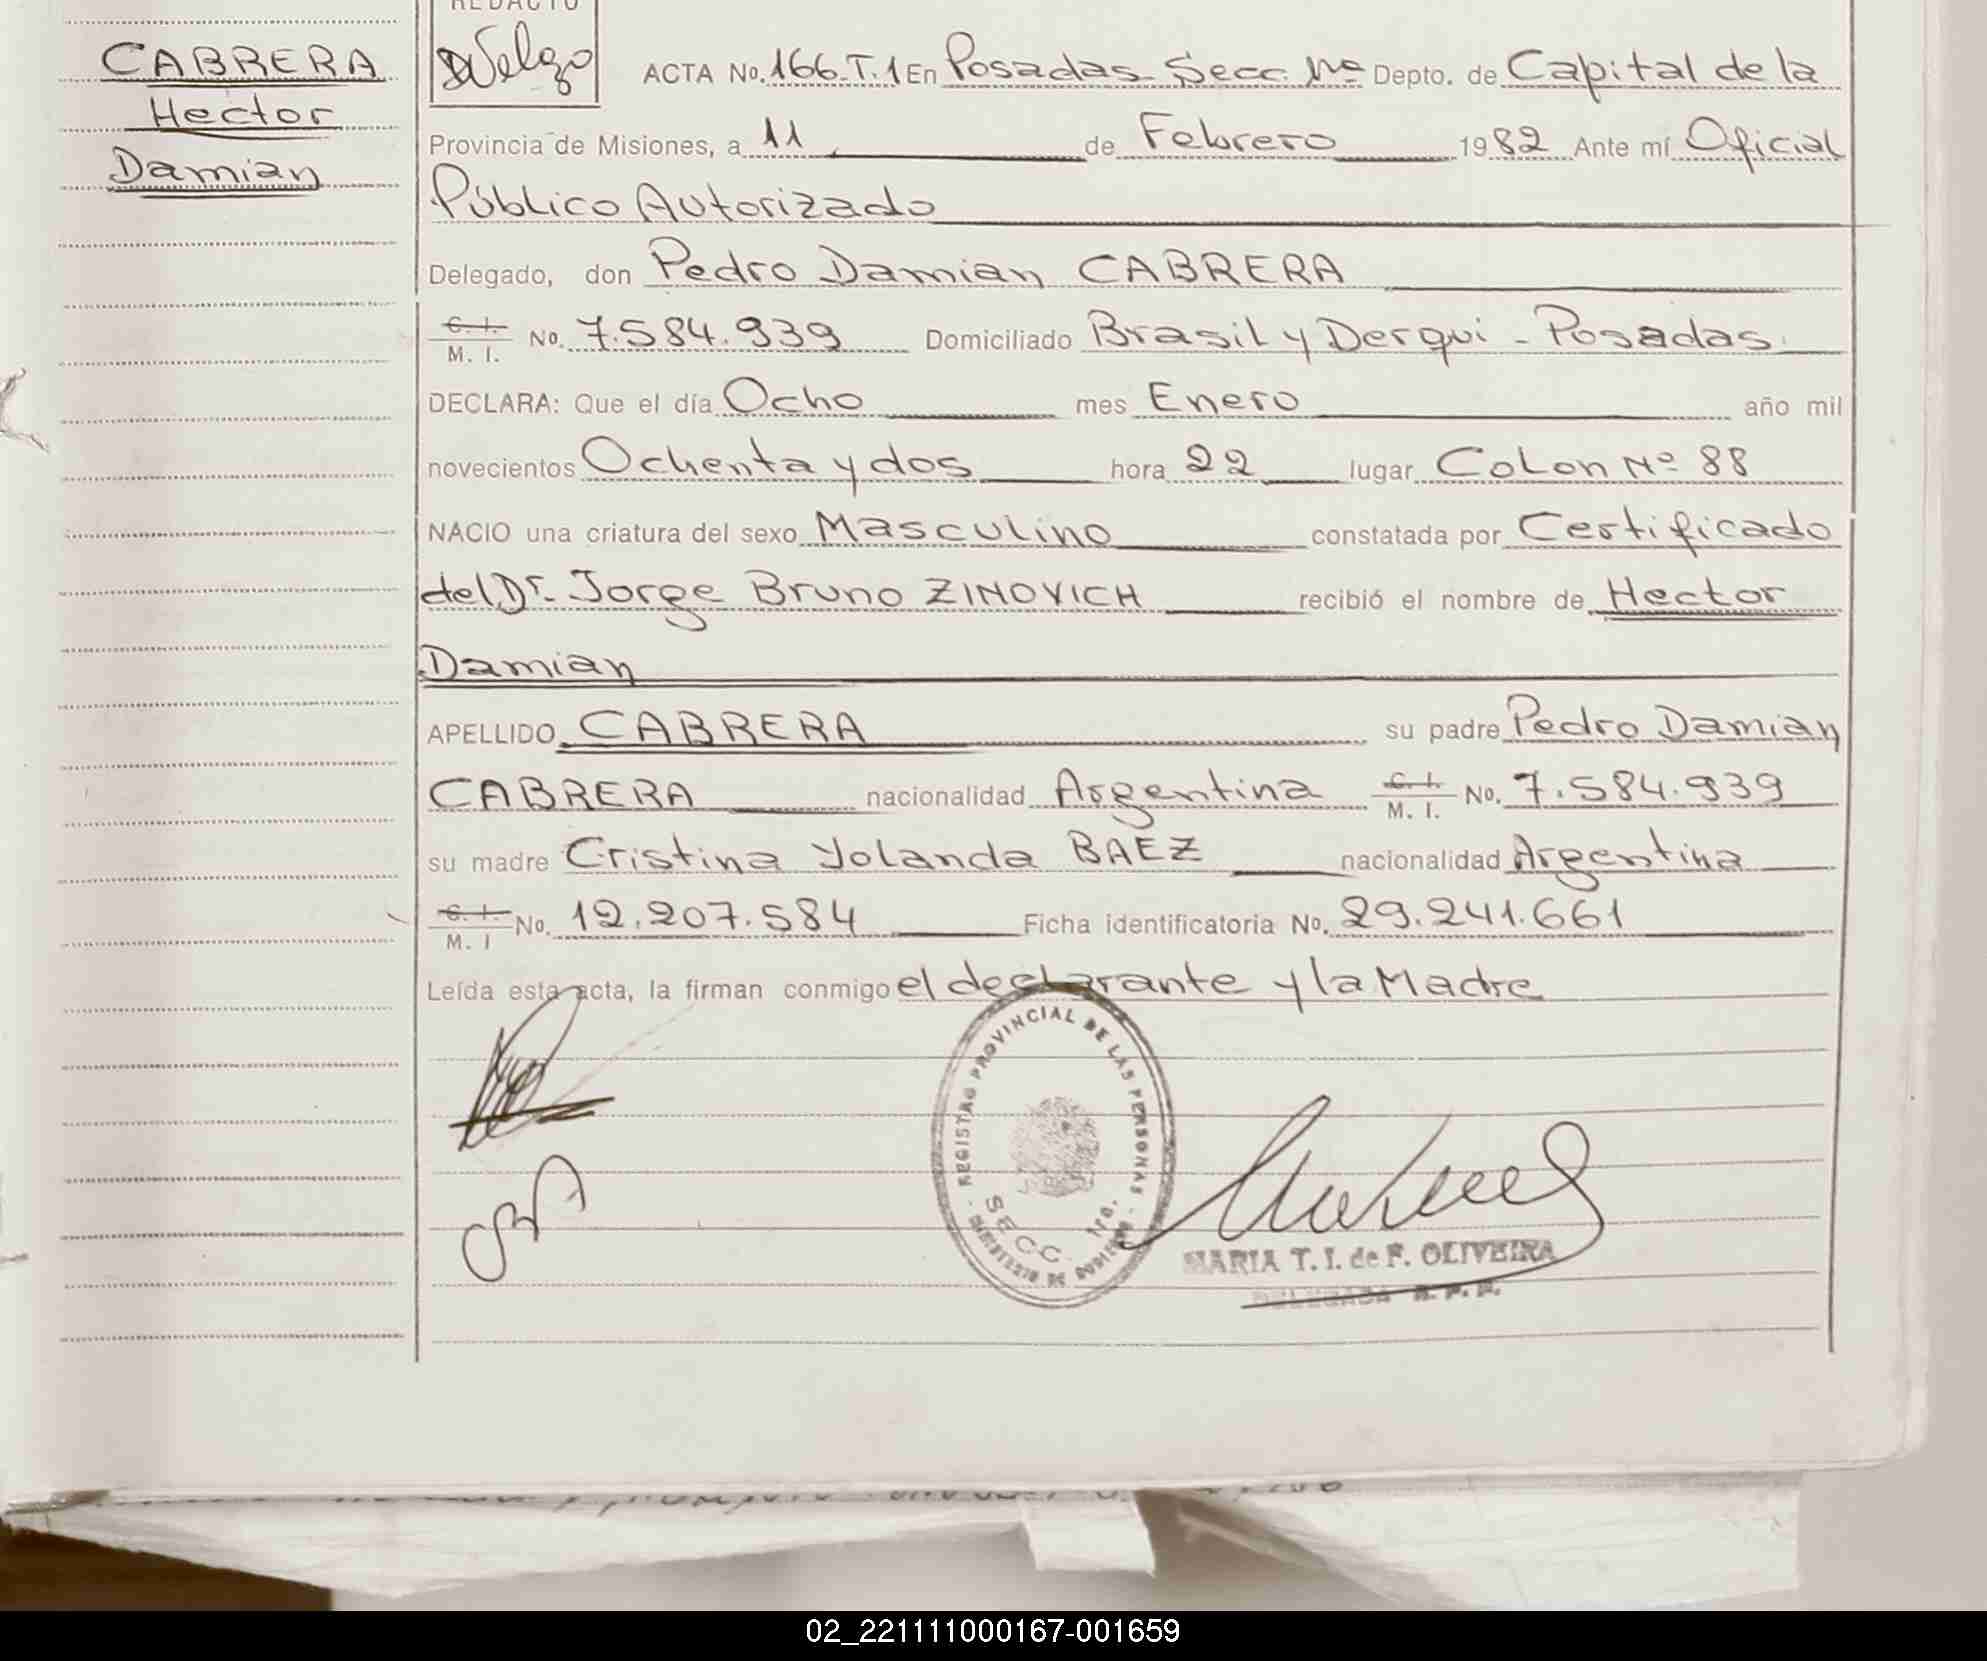 REDACTO
CABRERA
Hector
Damian
ACTA No. 166-T.1 En Posadas-Secc. 1ra Depto. de Capital de la
Provincia de Misiones, a 11 de Febrero 1982 Ante mí Oficial
Público Autorizado
Delegado, don Pedro Damian CABRERA
C. I. M. I. No. 7.584.939 Domiciliado Brasil y Derqui - Posadas.
DECLARA: Que el día Ocho mes Enero año mil
novecientos Ochenta y dos hora 22 lugar Colon Nº 88
NACIO una criatura del sexo Masculino constatada por Certificado
del Dr. Jorge Bruno ZINOVICH recibió el nombre de Hector
Damian
APELLIDO CABRERA su padre Pedro Damian
CABRERA nacionalidad Argentina C. I. M. I. No. 7.584.939
su madre Cristina Yolanda BAEZ nacionalidad Argentina
C. I. M. I No. 12.207.584 Ficha identificatoria No. 29.241.661
Leída esta acta, la firman conmigo el declarante y la Madre
- REGISTRO PROVINCIAL DE LAS PERSONAS -
SECC. 1ra.
MINISTERIO DE GOBIERNO
MARIA T. I. de F. OLIVEIRA
DELEGADA R. P. P.
02_221111000167-001659